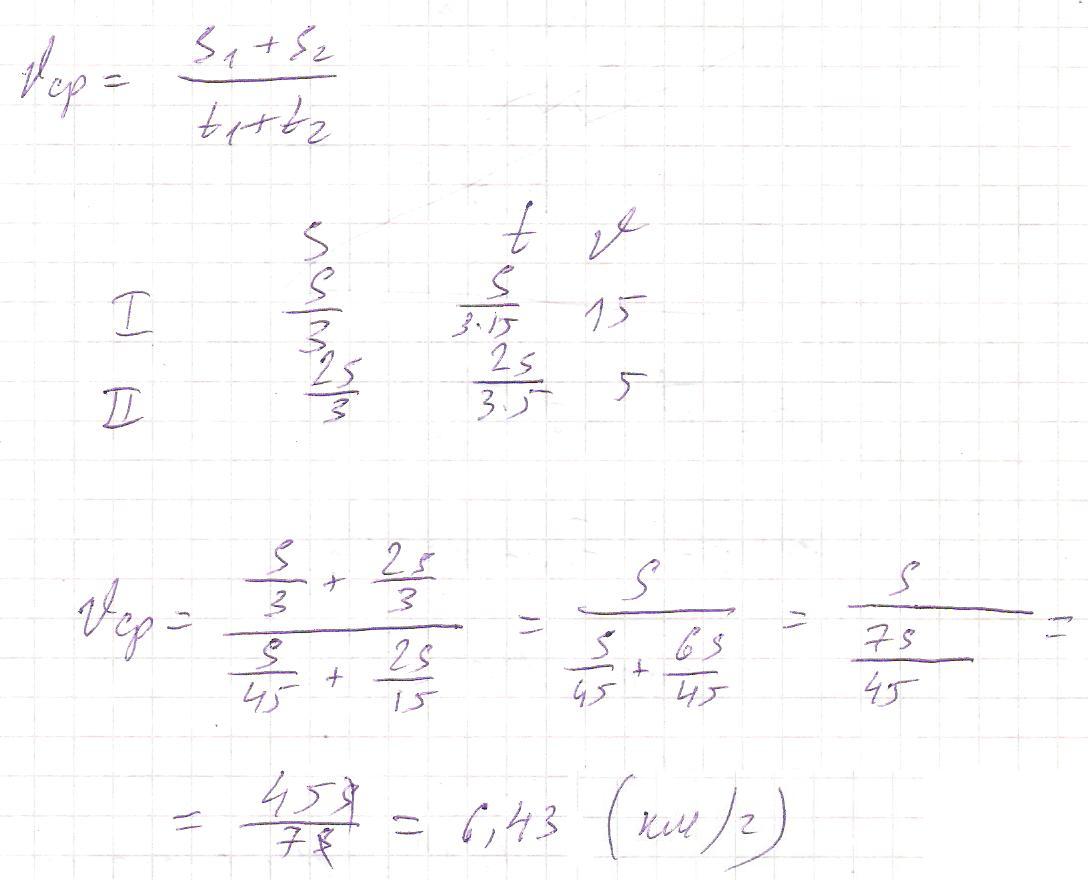 vср = (s₁ + s₂)/(t₁ + t₂)
S t v
I S/3 S/(3·15) 15
II 2s/3 2s/(3·5) 5
vср = (s/3 + 2s/3)/(s/45 + 2s/15) = S/(s/45 + 6s/45) = s/(7s/45) =
= 45s/7s = 6,43 (км/г)